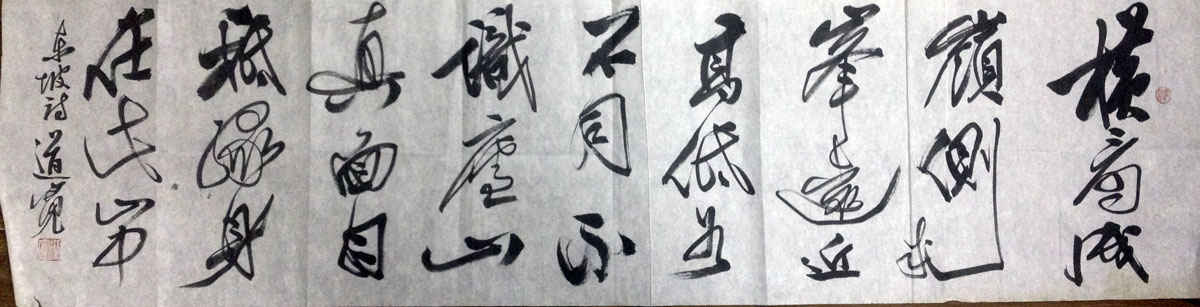 橫看成
嶺側成
峯遠近
高低各
不同不
識廬山
真面目
祗緣身
在此山中
東坡詩 道寬